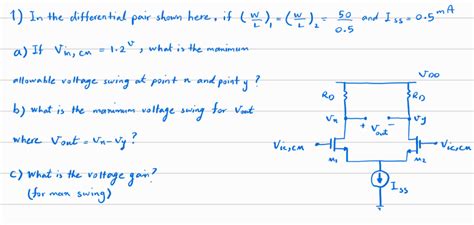 1) In the differential pair shown here, if (W/L)₁ = (W/L)₂ = 50/0.5 and Iss = 0.5 mA
a) If Vin,CM = 1.2 V, what is the maximum
allowable voltage swing at point x and point y ?
b) what is the maximum voltage swing for Vout
where Vout = Vx - Vy ?
c) What is the voltage gain?
(for max swing)
VDD
RD
RD
Vx
+ Vout -
Vy
Vic,CM
M1
M2
Vic,CM
Iss